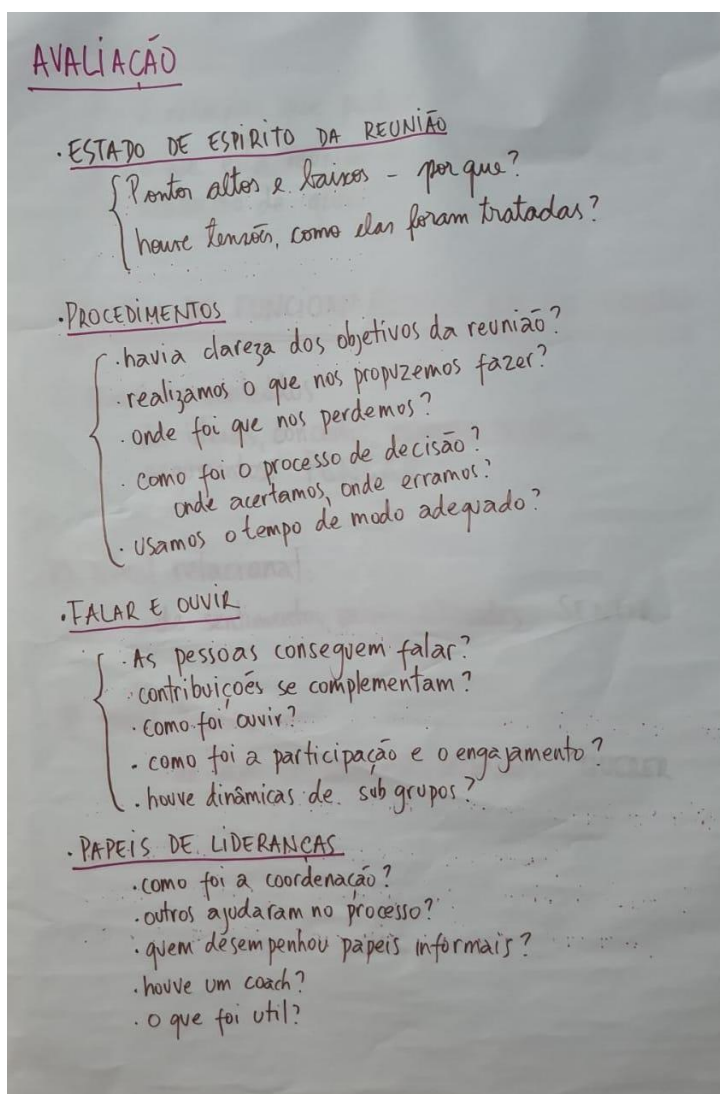 AVALIAÇÃO
· ESTADO DE ESPIRITO DA REUNIÃO
Pontos altos e baixos - por que?
houve tensões, como elas foram tratadas?
· PROCEDIMENTOS
· havia clareza dos objetivos da reunião?
· realizamos o que nos propuzemos fazer?
· onde foi que nos perdemos?
· como foi o processo de decisão?
onde acertamos, onde erramos?
· usamos o tempo de modo adequado?
· FALAR E OUVIR
· As pessoas conseguem falar?
· contribuições se complementam?
· como foi ouvir?
· como foi a participação e o engajamento?
· houve dinâmicas de sub grupos?
· PAPEIS DE LIDERANÇAS
· como foi a coordenação?
· outros ajudaram no processo?
· quem desempenhou papeis informais?
· houve um coach?
· o que foi util?